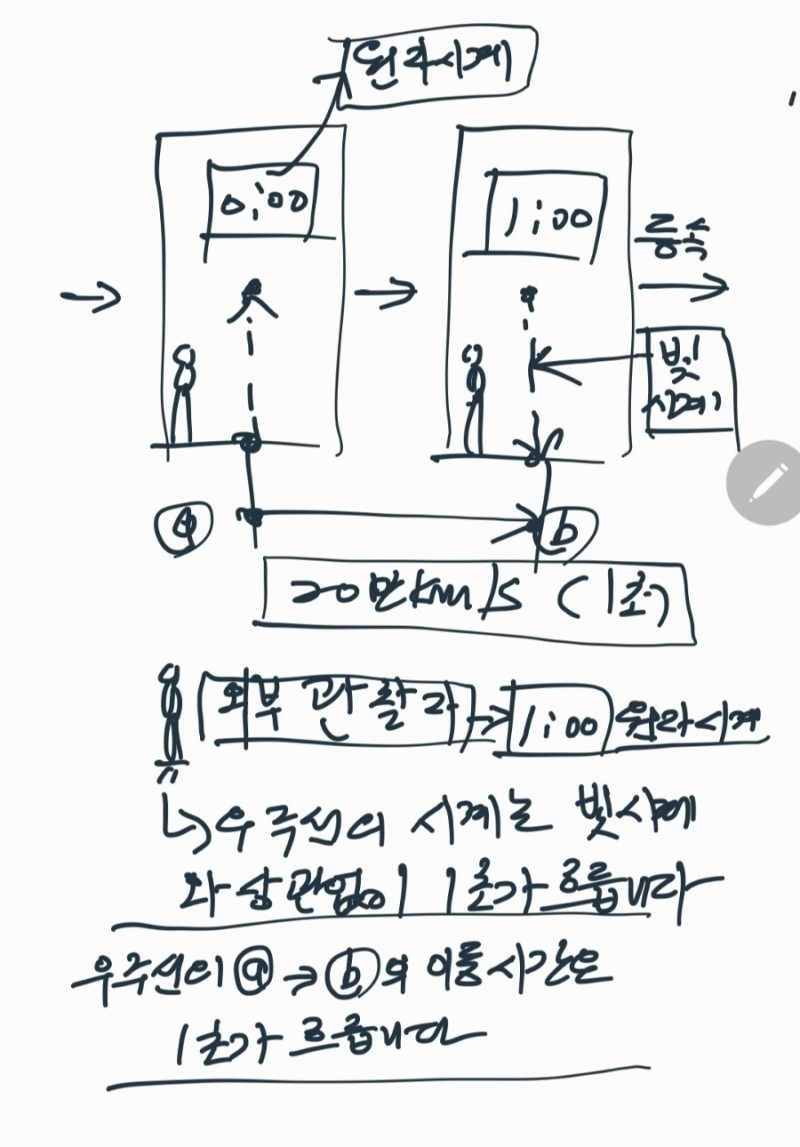 원자시계
0:00
1:00
등속
빛
시계
ⓐ
ⓑ
20만km/s (1초)
외부 관찰자 → 1:00 원자시계
↳ 우주선의 시계는 빛시계
와 상관없이 1초가 흐릅니다
우주선이 ⓐ → ⓑ의 이동시간은
1초가 흐릅니다